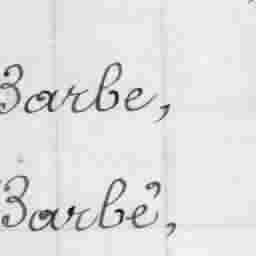 Barbe,
Barbé,